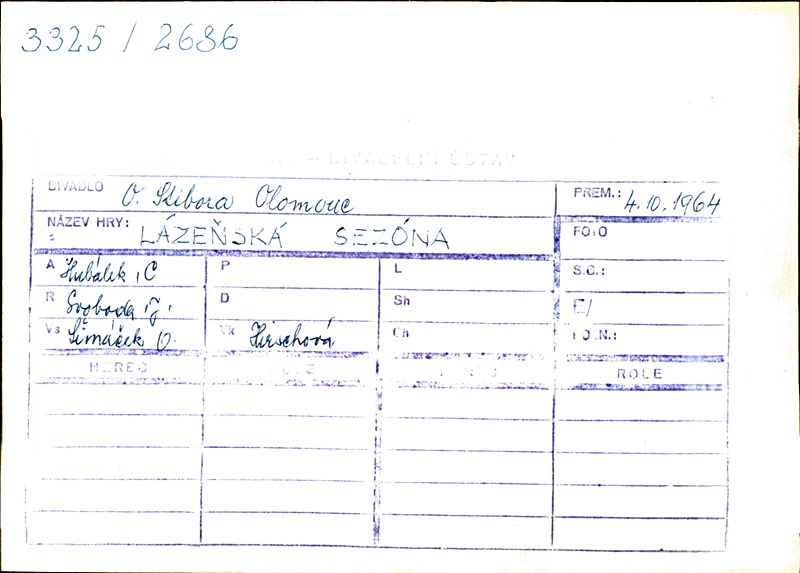 3325 / 2686
DIVADELNÍ ÚSTAV
DIVADLO O. Stibora Olomouc PREM.: 4.10.1964
NÁZEV HRY: LÁZEŇSKÁ SEZÓNA FOTO
A Hubálek, C P L S.C.:
R Svoboda, J. D Sh E/
Vs Šimáček O. Vk Hirschová Ch
HEREC ROLE HEREC ROLE